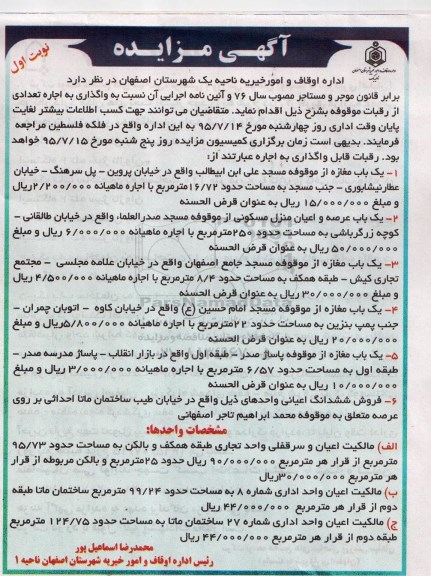 آگهی مزایده
نوبت اول
اداره اوقاف و امور خیریه ناحیه یک شهرستان اصفهان در نظر دارد
برابر قانون موجر و مستاجر مصوب سال ۷۶ و آئین نامه اجرایی آن نسبت به واگذاری به اجاره تعدادی
از رقبات موقوفه بشرح ذیل اقدام نماید. متقاضیان می توانند جهت کسب اطلاعات بیشتر لغایت
پایان وقت اداری روز چهارشنبه مورخ ۹۵/۷/۱۴ به این اداره واقع در فلکه فلسطین مراجعه
فرمایند. بدیهی است زمان برگزاری کمیسیون مزایده روز پنج شنبه مورخ ۹۵/۷/۱۵ خواهد
بود. رقبات قابل واگذاری به اجاره عبارتند از:
۱- یک باب مغازه از موقوفه مسجد علی ابن ابیطالب واقع در خیابان پروین - پل سرهنگ - خیابان
عطارنیشابوری - جنب مسجد به مساحت حدود ۱۶/۷۲مترمربع با اجاره ماهیانه ۲/۲۰۰/۰۰۰ریال
و مبلغ ۱۵/۰۰۰/۰۰۰ ریال به عنوان قرض الحسنه
۲- یک باب عرصه و اعیان منزل مسکونی از موقوفه مسجد صدرالعلما، واقع در خیابان طالقانی -
کوچه زرگرباشی به مساحت حدود ۲۵۰مترمربع با اجاره ماهیانه ۶/۰۰۰/۰۰۰ ریال و مبلغ
۵۰/۰۰۰/۰۰۰ ریال به عنوان قرض الحسنه
۳- یک باب مغازه از موقوفه مسجد جامع اصفهان واقع در خیابان علامه مجلسی - مجتمع
تجاری کیش - طبقه همکف به مساحت حدود ۸/۴ مترمربع با اجاره ماهیانه ۴/۵۰۰/۰۰۰ ریال
و مبلغ ۳۰/۰۰۰/۰۰۰ ریال به عنوان قرض الحسنه
۴- یک باب مغازه از موقوفه مسجد امام حسین (ع) واقع در خیابان کاوه - اتوبان چمران -
جنب پمپ بنزین به مساحت حدود ۲۲مترمربع با اجاره ماهیانه ۵/۸۰۰/۰۰۰ریال و مبلغ
۲۰/۰۰۰/۰۰۰ ریال به عنوان قرض الحسنه
۵- یک باب مغازه از موقوفه پاساژ صدر - طبقه اول واقع در بازار انقلاب - پاساژ مدرسه صدر -
طبقه اول به مساحت حدود ۶/۵۷ مترمربع با اجاره ماهیانه ۳/۰۰۰/۰۰۰ ریال و مبلغ
۱۰/۰۰۰/۰۰۰ ریال به عنوان قرض الحسنه
۶- فروش ششدانگ اعیانی واحدهای ذیل واقع در خیابان طیب ساختمان ماتا احداثی بر روی
عرصه متعلق به موقوفه محمد ابراهیم تاجر اصفهانی
مشخصات واحدها:
الف) مالکیت اعیان و سرقفلی واحد تجاری طبقه همکف و بالکن به مساحت حدود ۹۵/۷۳
مترمربع از قرار هر مترمربع ۹۰/۰۰۰/۰۰۰ ریال حدود ۲۵مترمربع و بالکن مربوطه از قرار
هر مترمربع ۳۰/۰۰۰/۰۰۰ریال
ب) مالکیت اعیان واحد اداری شماره ۸ به مساحت حدود ۹۹/۲۴ مترمربع ساختمان ماتا طبقه
دوم از قرار هر مترمربع ۴۴/۰۰۰/۰۰۰ ریال
ج) مالکیت اعیان واحد اداری شماره ۲۷ ساختمان ماتا به مساحت حدود ۱۲۴/۷۵ مترمربع
طبقه دوم از قرار هر مترمربع ۴۴/۰۰۰/۰۰۰ ریال
محمدرضا اسماعیل پور
رئیس اداره اوقاف و امور خیریه شهرستان اصفهان ناحیه ۱